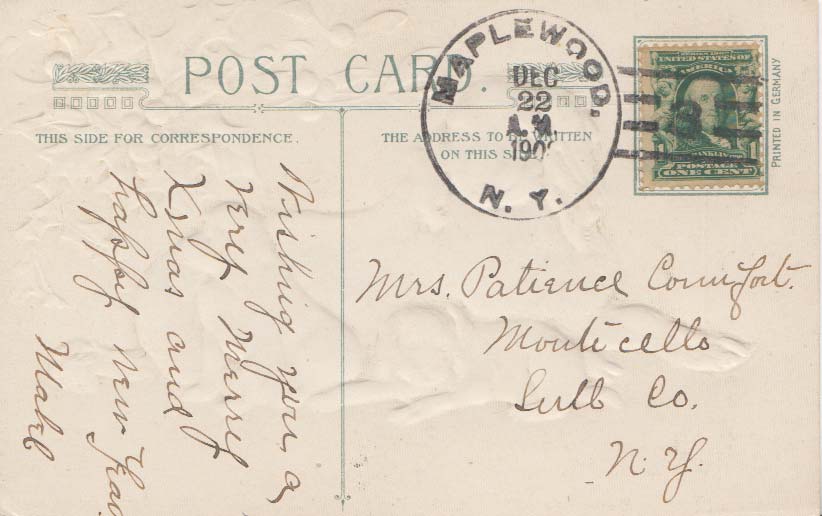 POST CARD.
THIS SIDE FOR CORRESPONDENCE.
THE ADDRESS TO BE WRITTEN
ON THIS SIDE
MAPLEWOOD,
DEC
22
A.M
190
N. Y.
UNITED STATES OF
AMERICA
FRANKLIN
POSTAGE
ONE CENT
PRINTED IN GERMANY
Wishing you a
very Merry
Xmas and
happy new Year
Mabel
Mrs. Patience Comfort.
Monticello
Sull Co.
N.Y.